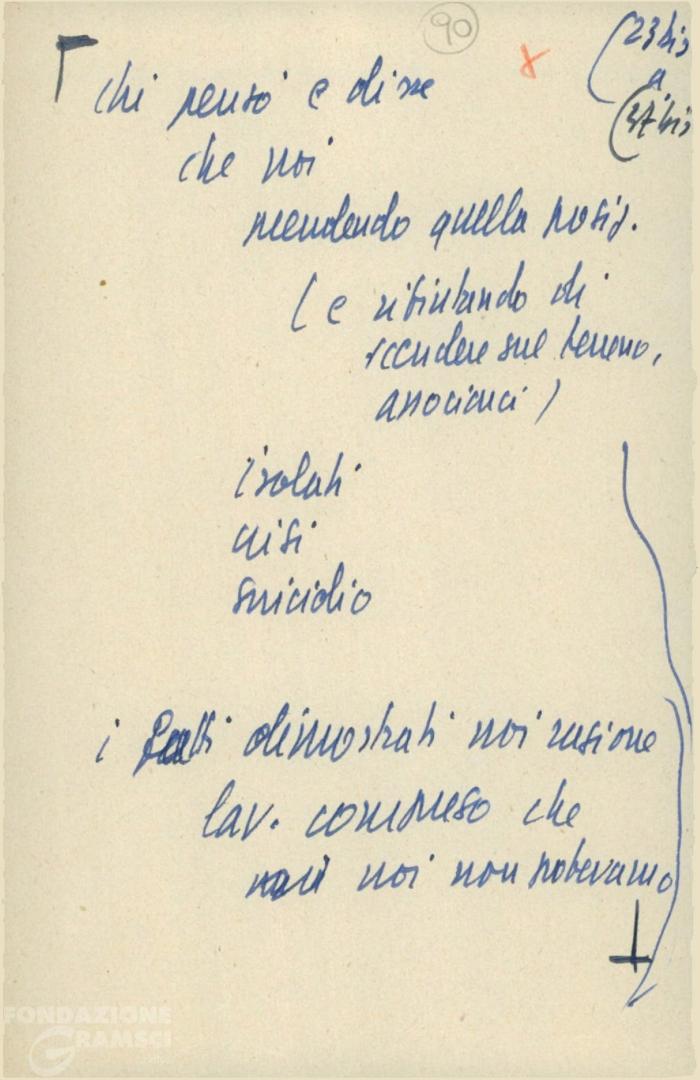 90
(23 bis
a
(37 bis
chi pensò e disse
che noi
prendendo quella posiz.
(e rifiutando di
scendere sul terreno,
associarci)
isolati
crisi
suicidio
i fatti dimostrati noi ragione
lav. compreso che
noi non potevamo
FONDAZIONE
GRAMSCI